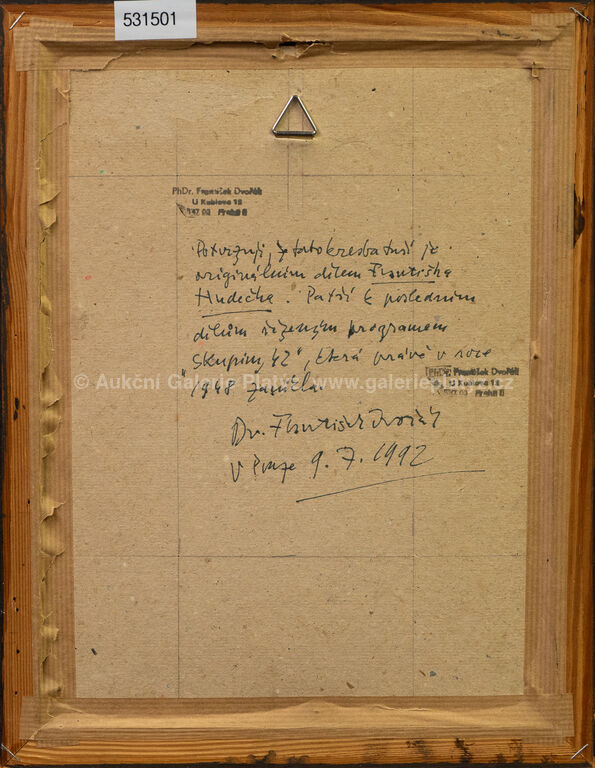 531501
PhDr. František Dvořák
U Kublova 18
147 00 Praha
Potvrzuji, že tato kresba tuší je
originálním dílem Františka
Hudečka. Patří k posledním
dílům řízeným programem
Skupiny 42", která právě v roce
1948 zanikla.
© Aukční Galerie Platýz www.galerieplatyz.cz
PhDr. František Dvořák
U Kublova 18
Praha
Dr. František Dvořák
V Praze 9. 7. 1992